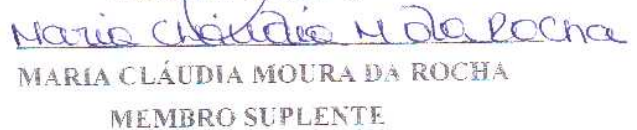 Maria Cláudia M da Rocha
MARIA CLÁUDIA MOURA DA ROCHA
MEMBRO SUPLENTE